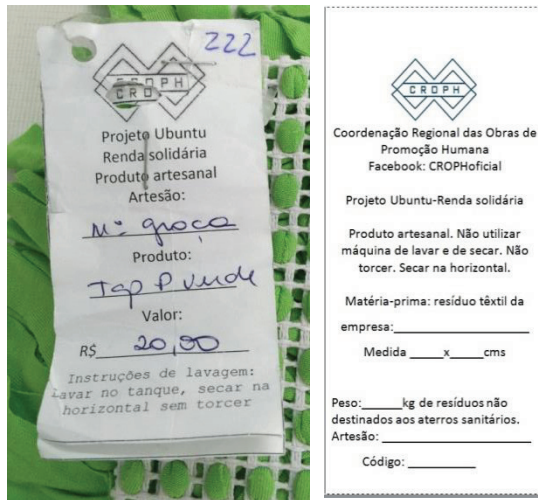 222
CROPH
Projeto Ubuntu
Renda solidária
Produto artesanal
Artesão:
Mª graça
Produto:
Tap P verde
Valor:
R$ 20,00
Instruções de lavagem:
Lavar no tanque, secar na
horizontal sem torcer
CROPH
Coordenação Regional das Obras de
Promoção Humana
Facebook: CROPHoficial
Projeto Ubuntu-Renda solidária
Produto artesanal. Não utilizar
máquina de lavar e de secar. Não
torcer. Secar na horizontal.
Matéria-prima: resíduo têxtil da
empresa:____________________
Medida _____x_____cms
Peso:______kg de resíduos não
destinados aos aterros sanitários.
Artesão: ______________________
Código: _________